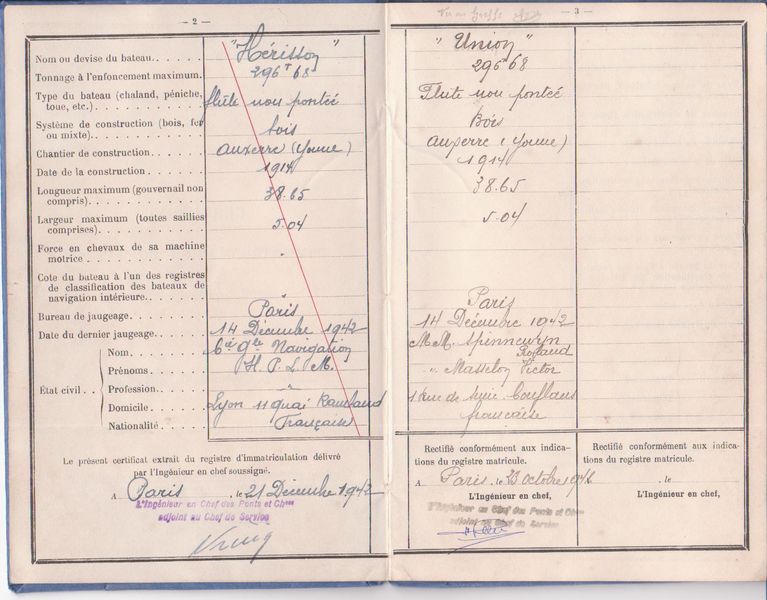 — 2 —
Nom ou devise du bateau. "Hérisson"
Tonnage à l'enfoncement maximum. 296T68
Type du bateau (chaland, péniche,
toue, etc.) flûte non pontée
Système de construction (bois, fer
ou mixte). bois
Chantier de construction. Auxerre (Yonne)
Date de la construction. 1914
Longueur maximum (gouvernail non
compris). 38.65
Largeur maximum (toutes saillies
comprises). 5.04
Force en chevaux de sa machine
motrice
Cote du bateau à l'un des registres
de classification des bateaux de
navigation intérieure.
Bureau de jaugeage. Paris
Date du dernier jaugeage. 14 Décembre 1942
État civil
Nom. Cie Gle Navigation
Prénoms. H. P. L. M.
Profession. "
Domicile. Lyon 11 quai Rambaud
Nationalité. Française
Le présent certificat extrait du registre d'immatriculation délivré
par l'Ingénieur en chef soussigné.
A Paris, le 21 Décembre 1942
L'Ingénieur en Chef des Ponts et Chees
adjoint au Chef de Service
— 3 —
"Union"
296T68
Flûte non pontée
Bois
Auxerre (Yonne)
1914
38.65
5.04
Paris
14 Décembre 1942
M.M. Spenneuryn
Rolland
" Masselon Victor
française
Rectifié conformément aux indica-
tions du registre matricule.
A Paris, le 23 Octobre
L'Ingénieur en chef,
L'Ingénieur en Chef des Ponts et Chees
adjoint au Chef de Service
Rectifié conformément aux indica-
tions du registre matricule.
A le
L'Ingénieur en chef,